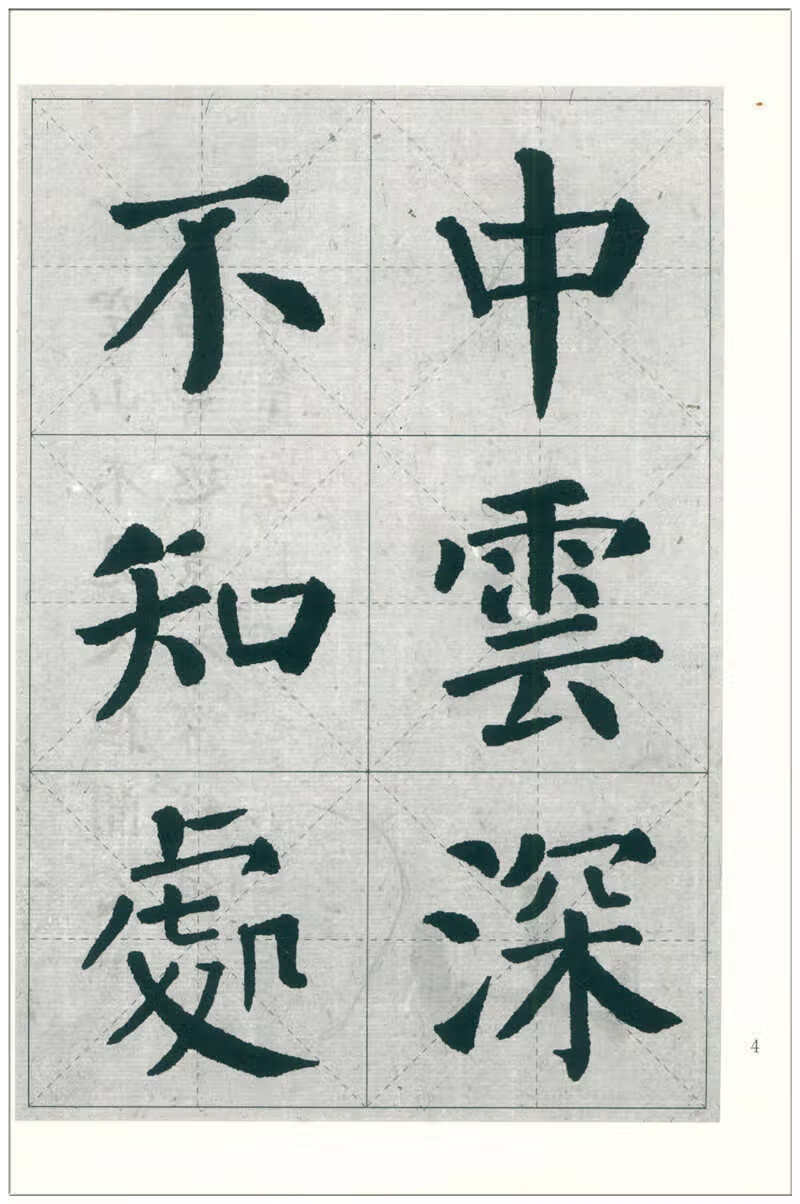 中雲深
不知處
4